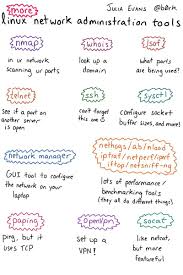 more
JULIA EVANS @b0rk
linux network administration tools
nmap
in ur network
scanning ur ports
whois
look up a
domain
lsof
what ports
are being used?
telnet
see if a port
on another
server is
open
ssh
can't forget
this one
sysctl
configure socket
buffer sizes, and more!
network manager
GUI tool to configure
the network on your
laptop
nethogs/ab/nload/
iptraf/netperf/iperf
iftop/netsniff-ng
lots of performance /
benchmarking tools
(they all do different things)
paping
ping, but it
uses TCP
openvpn
set up a
VPN!
socat
like netcat,
but more
featureful